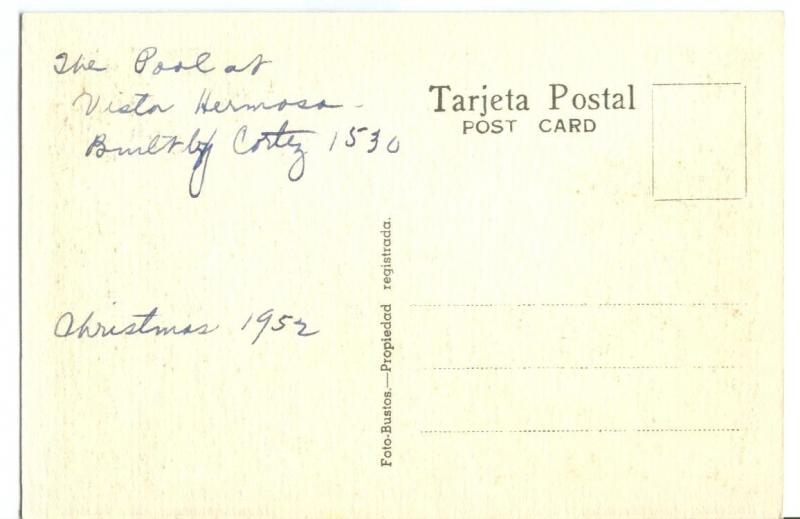 The Pool at
Vista Hermosa -
Built by Cortez 1530
Christmas 1952
Tarjeta Postal
POST CARD
Foto-Bustos.—Propiedad registrada.